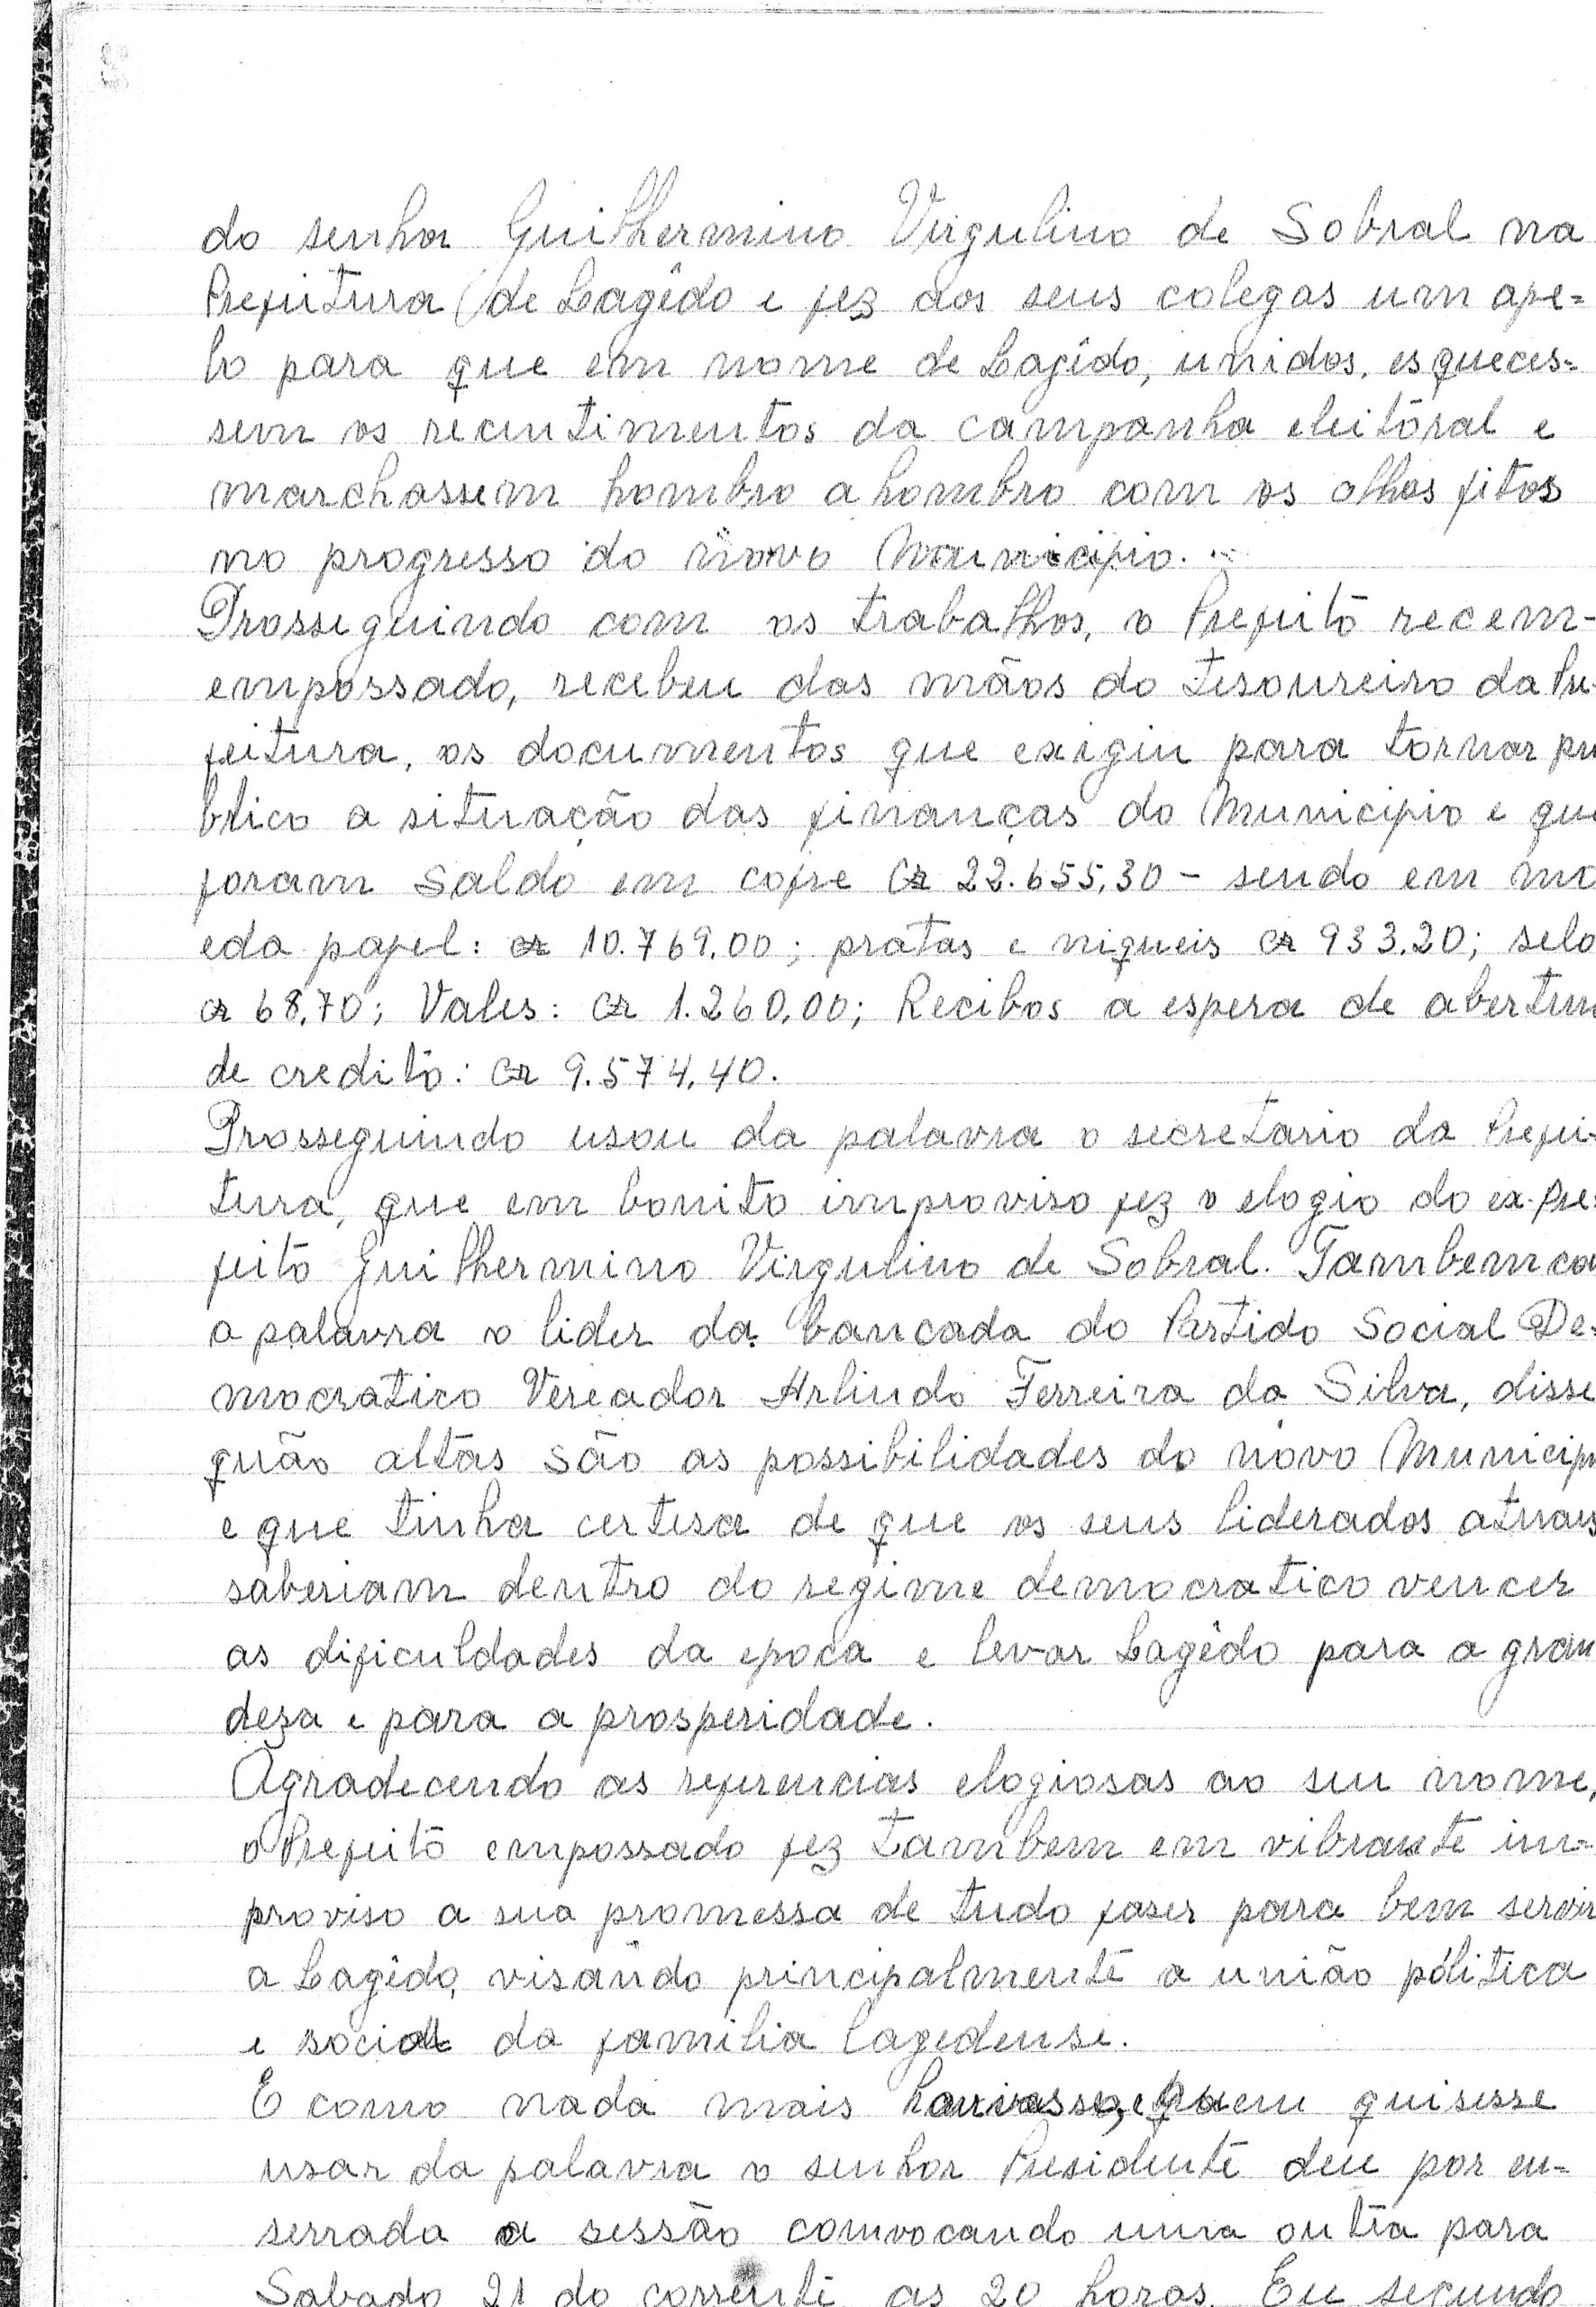 do senhor Guilhermino Virgulino de Sobral na
Prefeitura de Lagêdo e fez aos seus colegas um ape=
lo para que em nome de Lagêdo, unidos, esqueces=
sem os recentimentos da campanha eleitoral e
marchassem hombro a hombro com os olhos fitos
no progresso do novo Municipio.
Prosseguindo com os trabalhos, o Prefeito recem-
empossado, recebeu das mãos do tesoureiro da Pre-
feitura, os documentos que exigiu para tornar pu
blico a situação das finanças do Municipio e que
foram Saldo em cofre Cr 22.655,30 - sendo em mo
eda papel: cr 10.769,00; pratas e niqueis cr 933,20; selo
cr 68,70; Vales: Cr 1.260,00; Recibos a espera de abertur
de credito: Cr 9.574,40.
Prosseguindo usou da palavra o secretario da Prefei-
tura, que em bonito improviso fez o elogio do ex-Pre=
feito Guilhermino Virgulino de Sobral. Tambem com
a palavra o lider da bancada do Partido Social De=
mocratico Vereador Arlindo Ferreira da Silva, disse
quão altas são as possibilidades do novo Municipi
e que tinha certesa de que os seus liderados atuais
saberiam dentro do regime democratico vencer
as dificuldades da epoca e levar Lagêdo para a gran
deza e para a prosperidade.
Agradecendo as referencias elogiosas ao seu nome,
o Prefeito empossado fez tambem em vibrante im=
proviso a sua promessa de tudo faser para bem servir
a Lagêdo, visando principalmente a união política
e social da familia lagedense.
E como nada mais quem quisesse
usar da palavra o senhor Presidente deu por en=
serrada a sessão comvocando uma outra para
Sabado 21 do corrente as 20 horas. Eu segundo